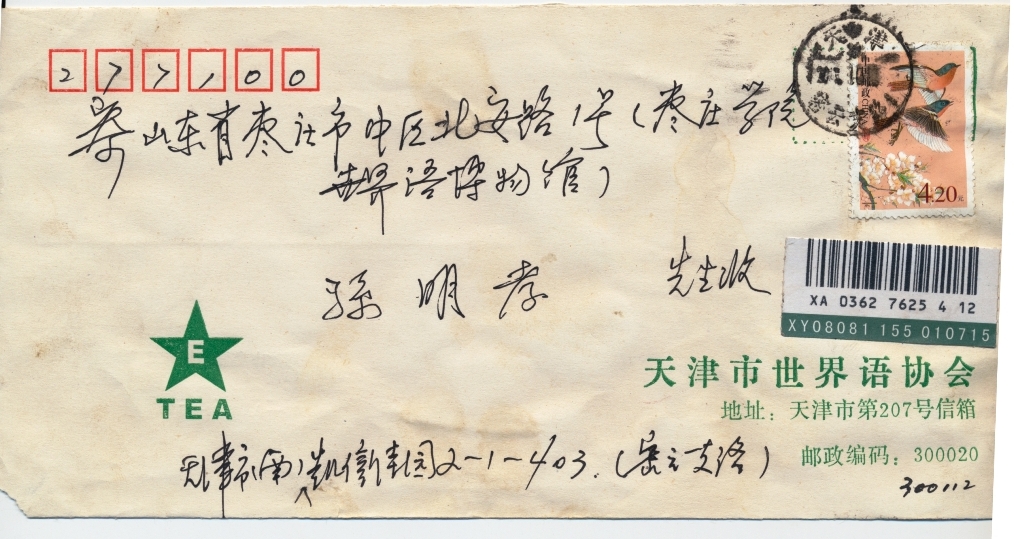 277100
寄 山东省枣庄市中区北安路1号(枣庄学院
世界语博物馆)
孙明孝 先生收
天津
中国邮政 CHINA
4.20元
XA 0362 7625 4 12
XY08081 155 010715
E
TEA
天津市世界语协会
地址：天津市第207号信箱
邮政编码：300020
300112
天津市南开 2-1-403.